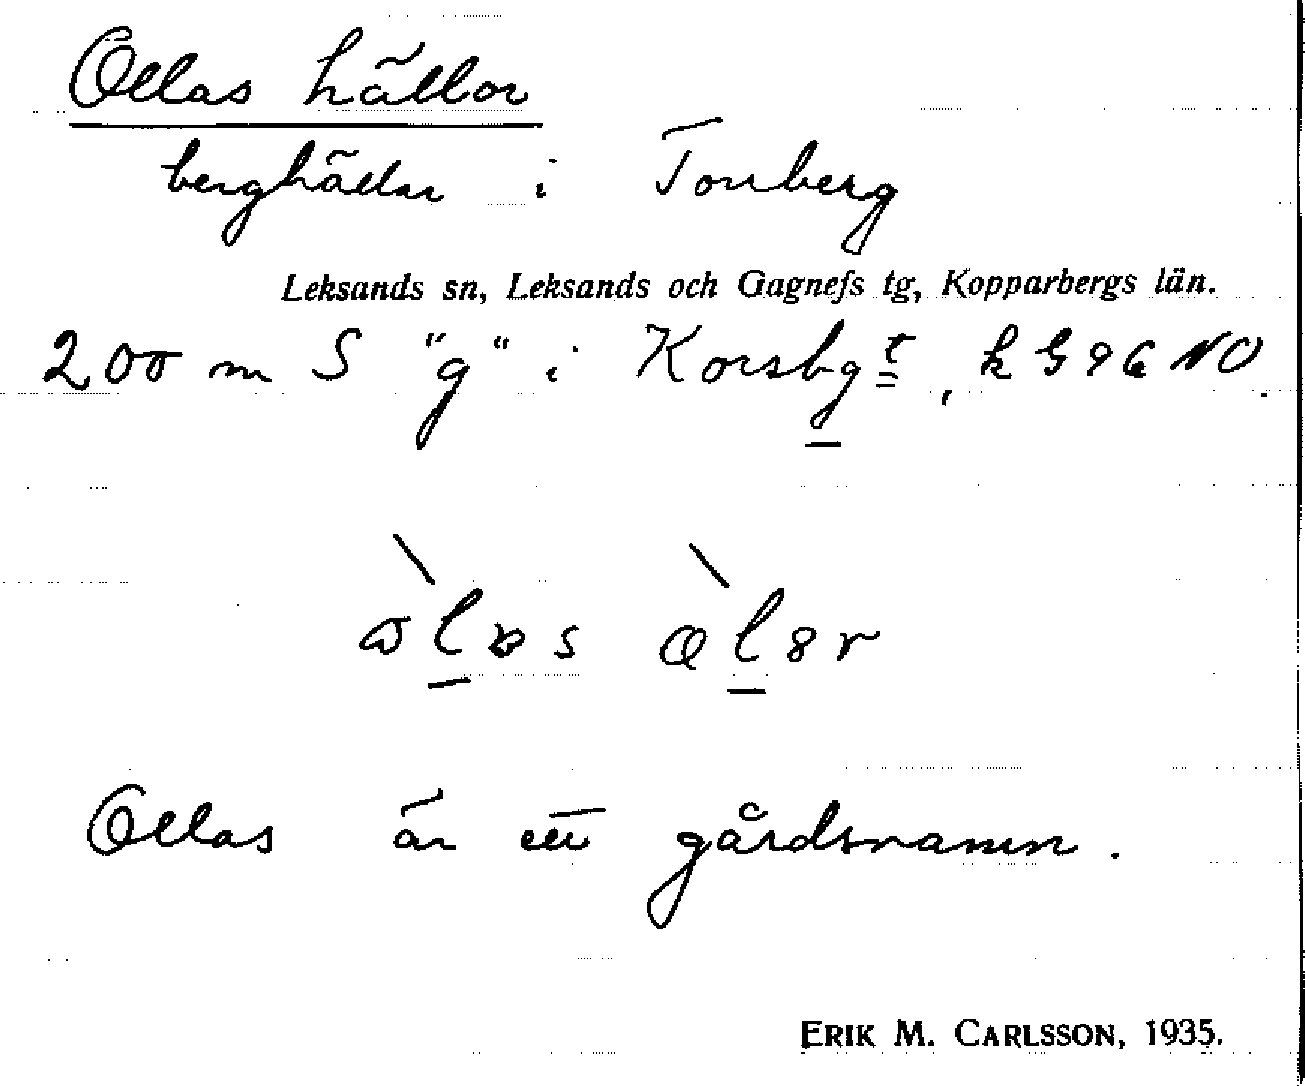 Ollas hällor
berghällar i Tonberg
Leksands sn, Leksands och Gagnefs tg, Kopparbergs län.
200 m S "g" i Korsbgt, k G96 NO.
Ollas är ett gårdsnamn.
ERIK M. CARLSSON, 1935.